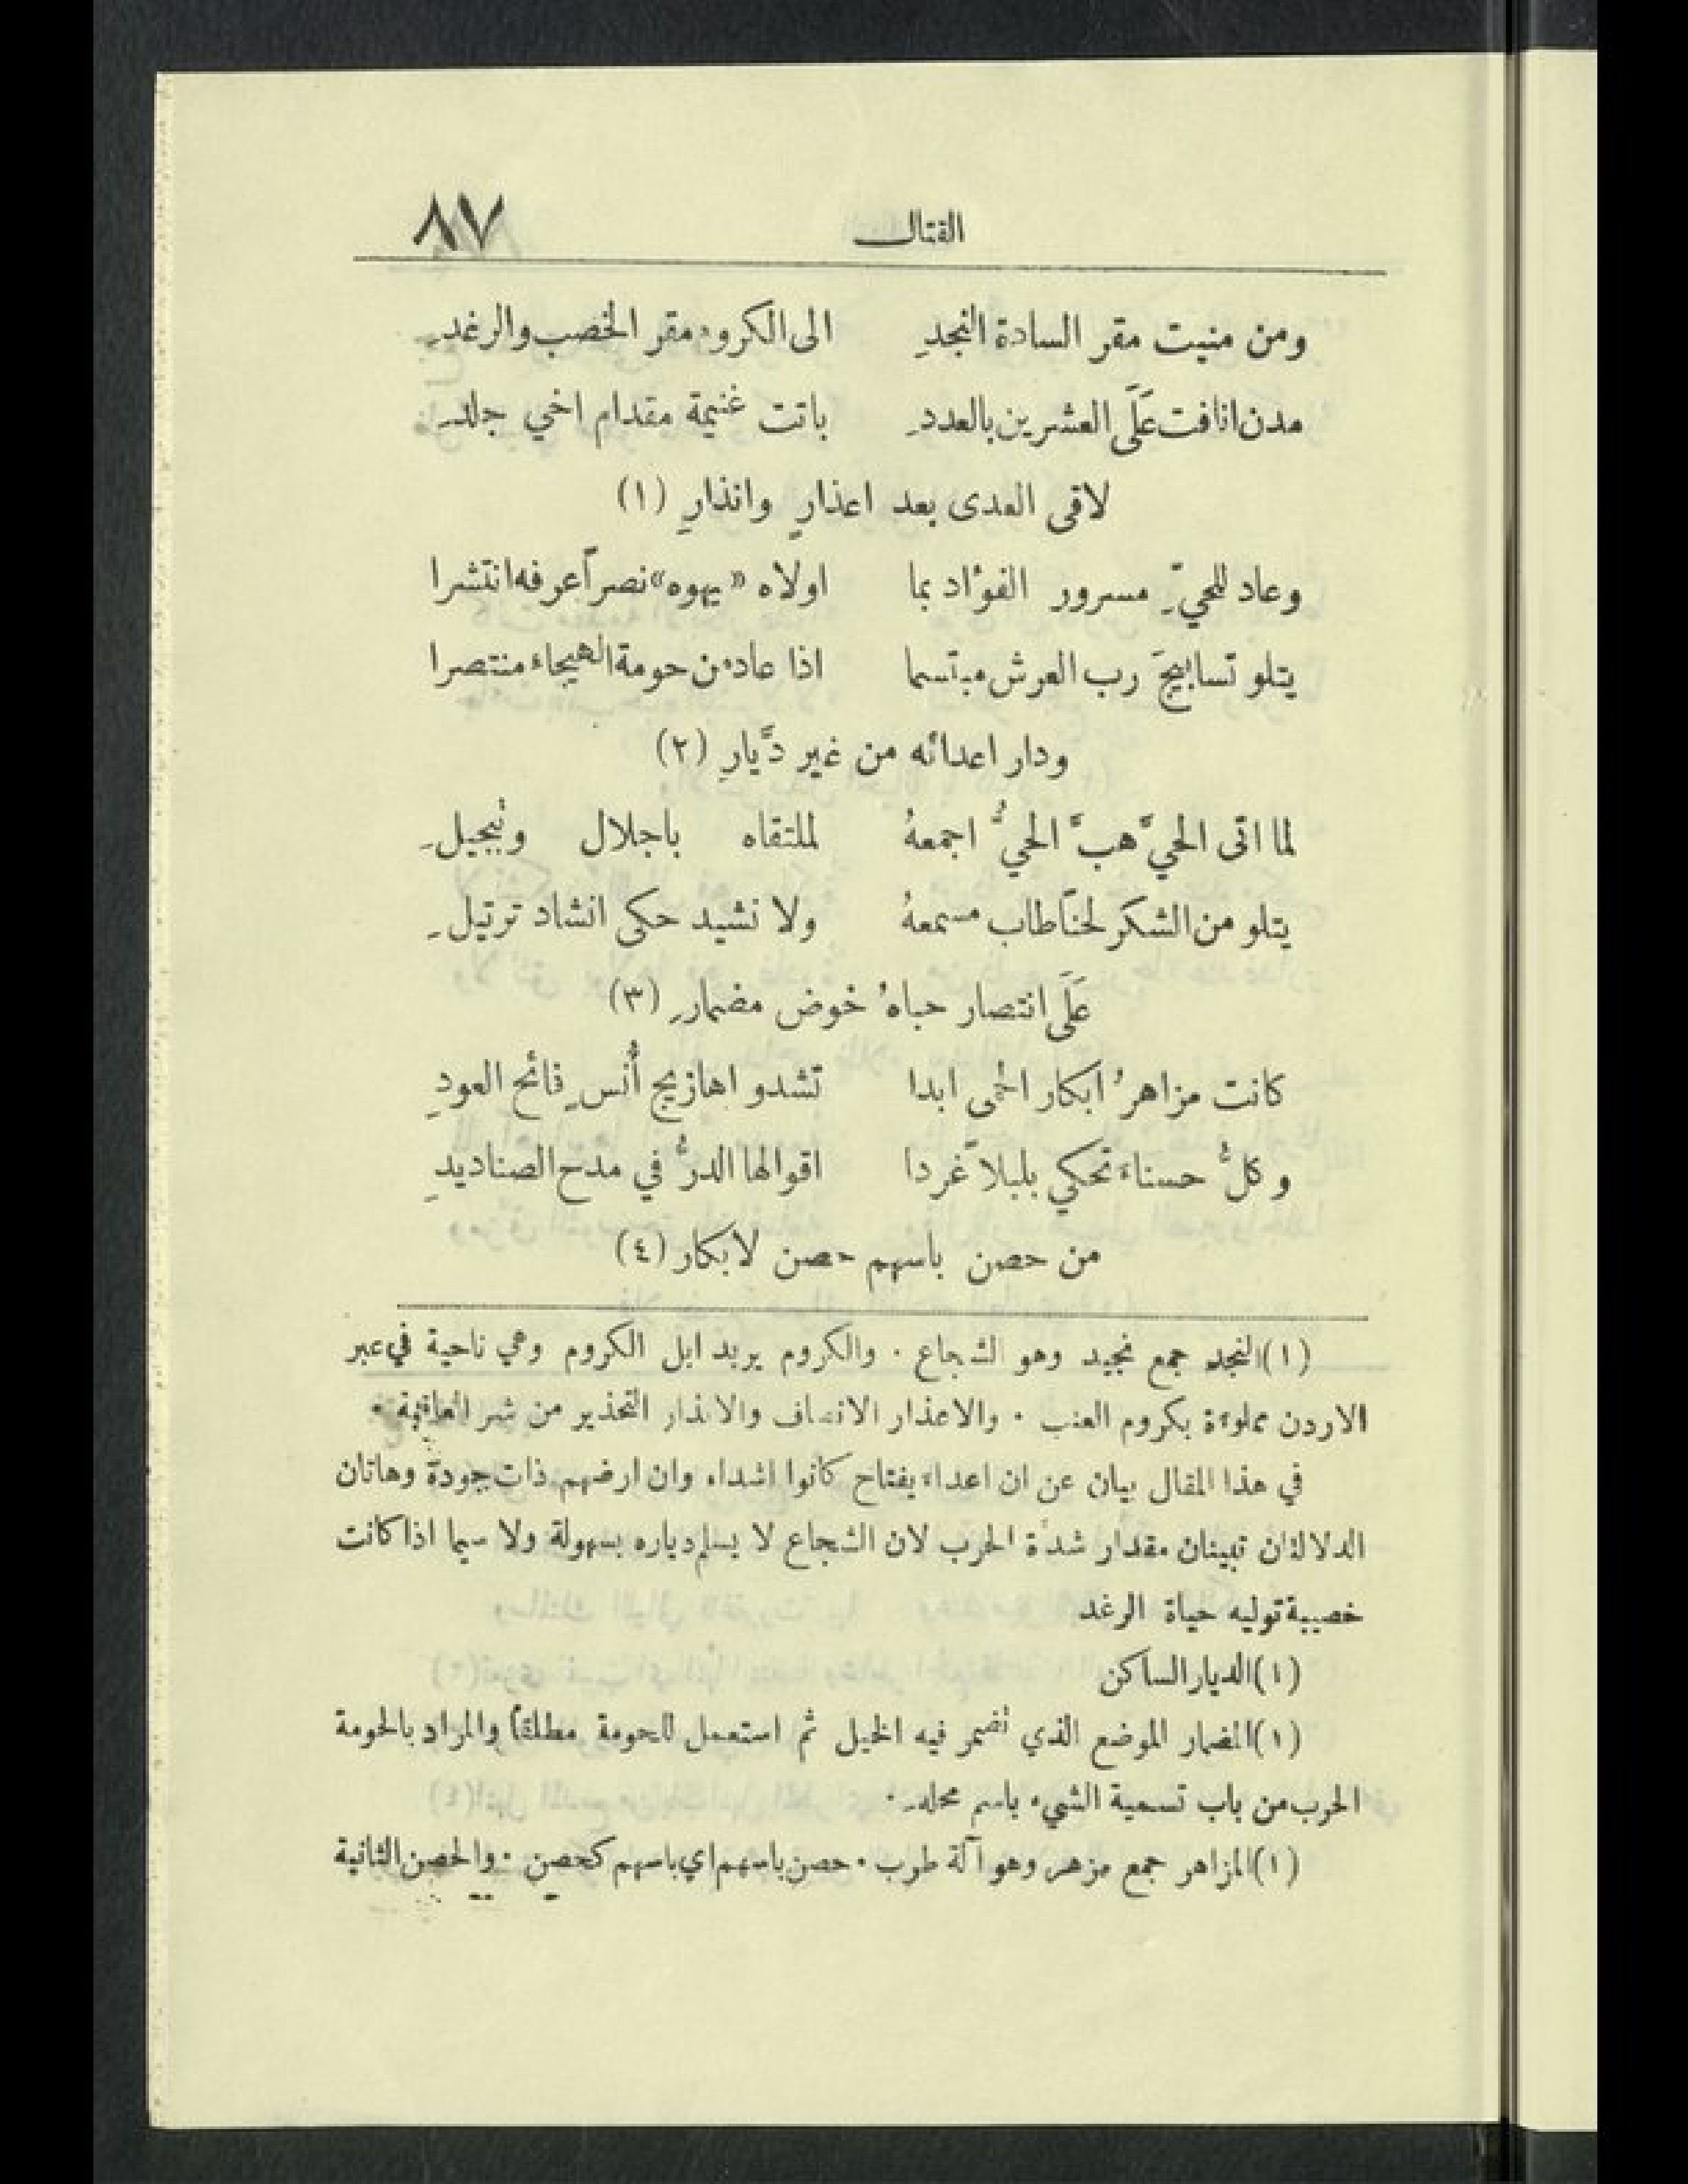 القتال ٨٧
ومن منيت مقر السادة النجدِ الى الكروم مقر الخصب والرغدِ
مدن انافت عَلَى العشرين بالعددِ باتت غنيمة مقدام اخي جلدِ
لاقى العدى بعد اعذارٍ وانذارِ (١)
وعاد للحيِّ مسرور الفؤاد بما اولاه «يهوه» نصراً عرفه انتشرا
يتلو تسابيحَ رب العرش مبتسما اذا عاد من حومة الهيجاء منتصرا
ودار اعدائه من غير دَّيارِ (٢)
لما اتى الحيَّ هبَّ الحيُّ اجمعهُ لملتقاه باجلال وتبجيلِ
يتلو من الشكر لحنًا طاب مسمعهُ ولا نشيد حكى انشاد ترتيلِ
عَلَى انتصار حباهُ خوض مضمارِ (٣)
كانت مزاهرُ ابكار الحمى ابدا تشدو اهازيج أُنسٍ فائح العودِ
وكلُّ حسناء تحكي بلبلاً غردا اقوالها الدرُّ في مدح الصناديدِ
من حصن باسهم حصن لابكار (٤)
(١) النجد جمع نجيد وهو الشجاع . والكروم يريد ابل الكروم وهي ناحية في عبر
الاردن مملوءة بكروم العنب . والاعذار الانصاف والانذار التحذير من شر العاقبة .
في هذا المقال بيان عن ان اعداء يفتاح كانوا اشداء وان ارضهم ذات جودة وهاتان
الدلالتان تبينان مقدار شدة الحرب لان الشجاع لا يسلم دياره بسهولة ولا سيما اذا كانت
خصيبة توليه حياة الرغد
(١) الديار الساكن
(١) المضمار الموضع الذي تضمر فيه الخيل ثم استعمل للحومة مطلقاً والمراد بالحومة
الحرب من باب تسمية الشيء باسم محله .
(١) المزاهر جمع مزهر وهو آلة طرب . حصن باسهم اي باسهم كحصن . والحصن الثانية